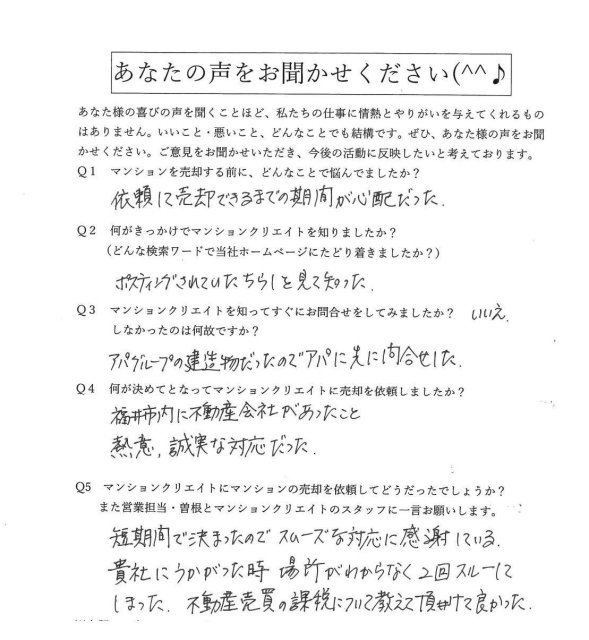 あなたの声をお聞かせください(^^♪
あなた様の喜びの声を聞くことほど、私たちの仕事に情熱とやりがいを与えてくれるもの
はありません。いいこと・悪いこと、どんなことでも結構です。ぜひ、あなた様の声をお聞
かせください。ご意見をお聞かせいただき、今後の活動に反映したいと考えております。
Q1 マンションを売却する前に、どんなことで悩んでましたか？
依頼して売却できるまでの期間が心配だった.
Q2 何がきっかけでマンションクリエイトを知りましたか？
（どんな検索ワードで当社ホームページにたどり着きましたか？）
ポスティングされていたちらしを見て知った.
Q3 マンションクリエイトを知ってすぐにお問合せをしてみましたか？ いいえ.
しなかったのは何故ですか？
アパグループの建造物だったのでアパに先に問合せした.
Q4 何が決めてとなってマンションクリエイトに売却を依頼しましたか？
福井市内に不動産会社があったこと
熱意, 誠実な対応だった.
Q5 マンションクリエイトにマンションの売却を依頼してどうだったでしょうか？
また営業担当・曽根とマンションクリエイトのスタッフに一言お願いします。
短期間で決まったので スムーズな対応に感謝している.
貴社にうかがった時 場所がわからなく2回スルーして
しまった. 不動産売買の課税について教えて頂けて良かった.